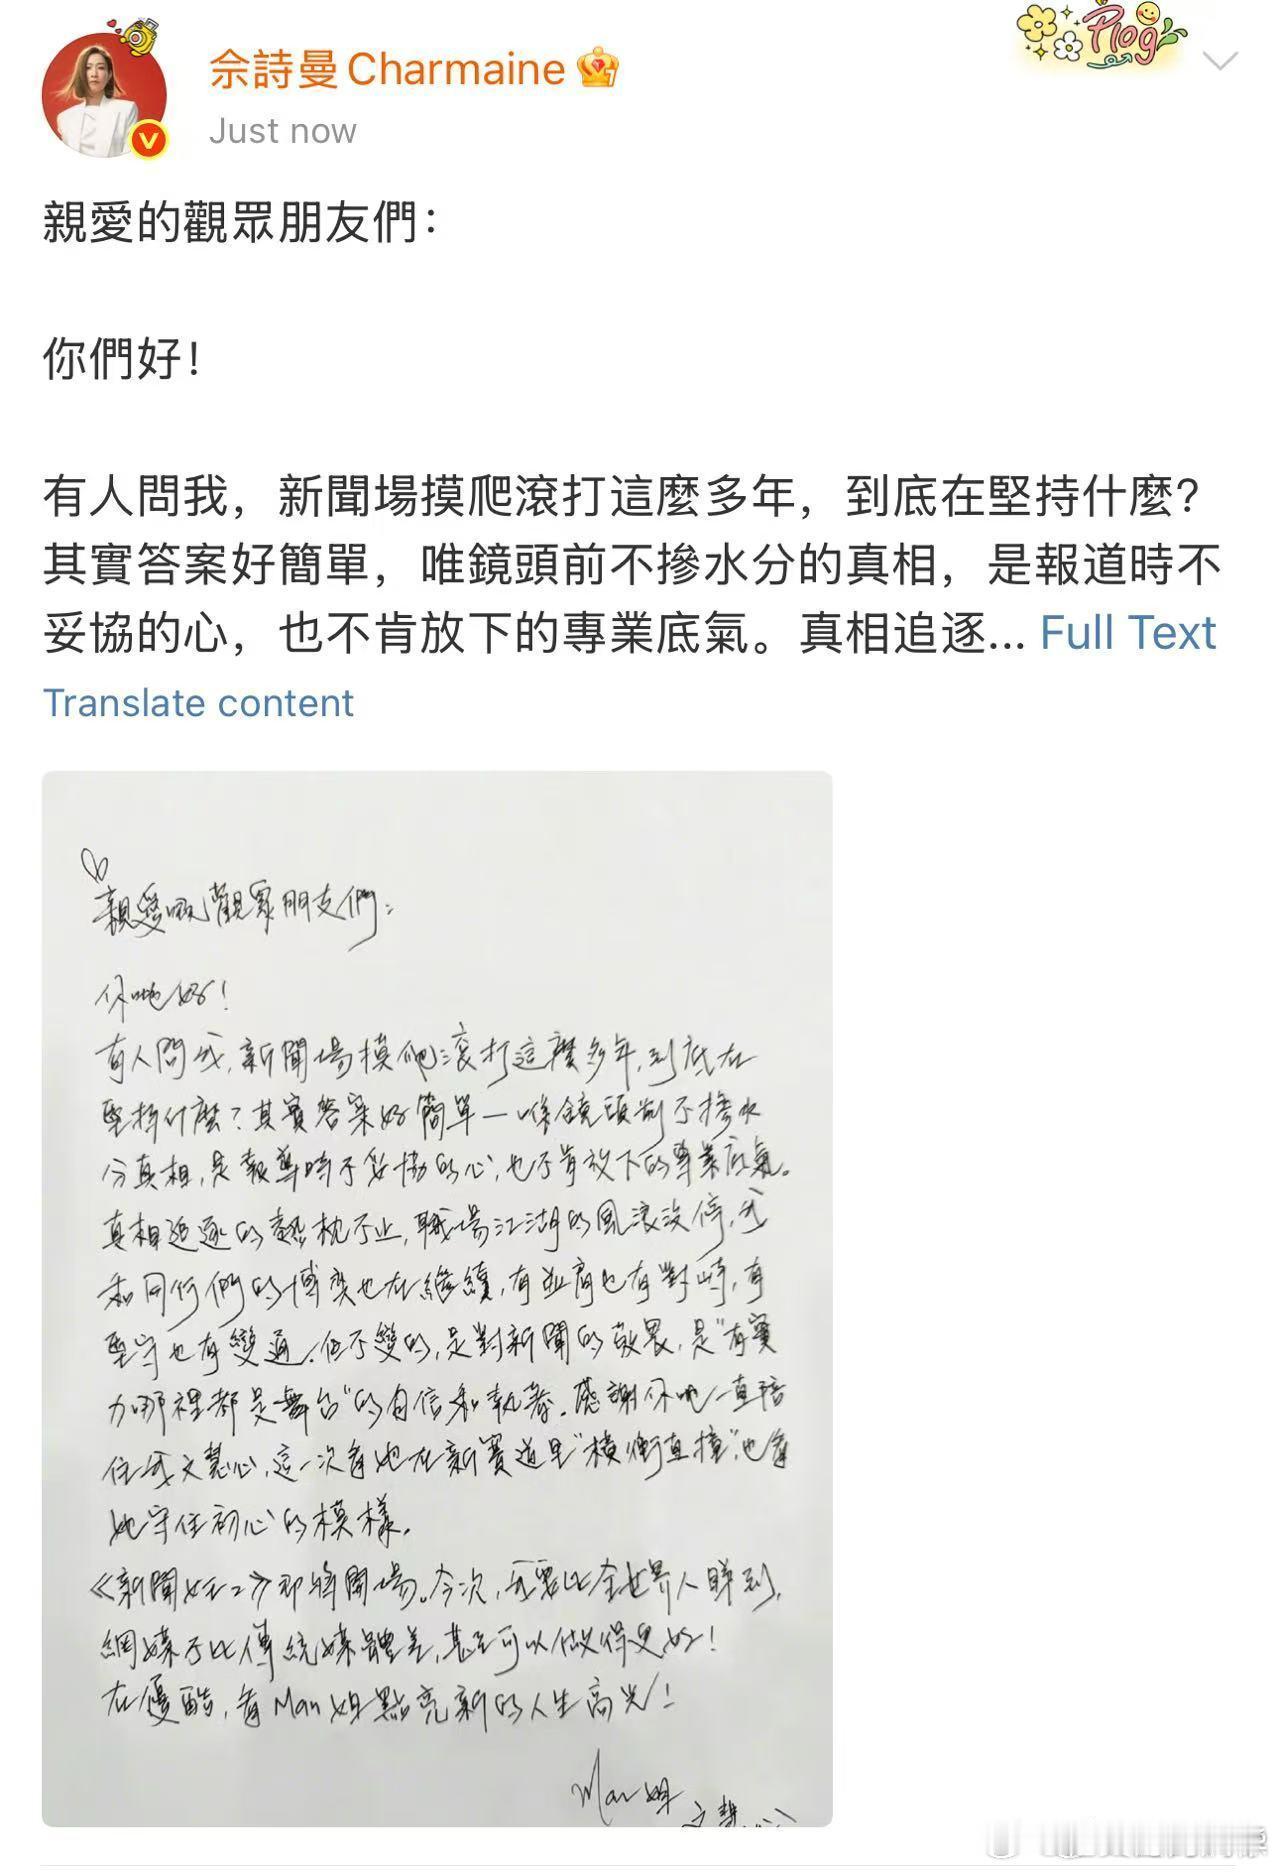 Plog
佘詩曼Charmaine
Just now
親愛的觀眾朋友們：
你們好！
有人問我，新聞場摸爬滾打這麼多年，到底在堅持什麼？
其實答案好簡單，唯鏡頭前不摻水分的真相，是報道時不
妥協的心，也不肯放下的專業底氣。真相追逐... Full Text
Translate content
親愛嘅觀眾朋友們：
你哋好！
有人問我，新聞場摸爬滾打這麼多年，到底在
堅持什麼？其實答案好簡單—喺鏡頭前不摻水
分真相，是報導時不妥協的心，也不肯放下的專業底氣。
真相追逐的熱忱不止，職場江湖的風浪沒停，我
和同行們的博奕也在繼續，有並肩也有對峙，有
堅守也有變通。但不變的，是對新聞的敬畏，是"有實
力哪裡都是舞台"的自信和執著。感謝你哋一直陪
住我文慧心，這一次看她在新賽道里"橫衝直撞"，也看
她守住初心的模樣。
《新聞女王2》即將開場。今次，我要比全世界人睇到，
網媒不比傳統媒體差，甚至可以做得更好！
在優酷，看Man姐點亮新的人生高光！
Man姐
文慧心